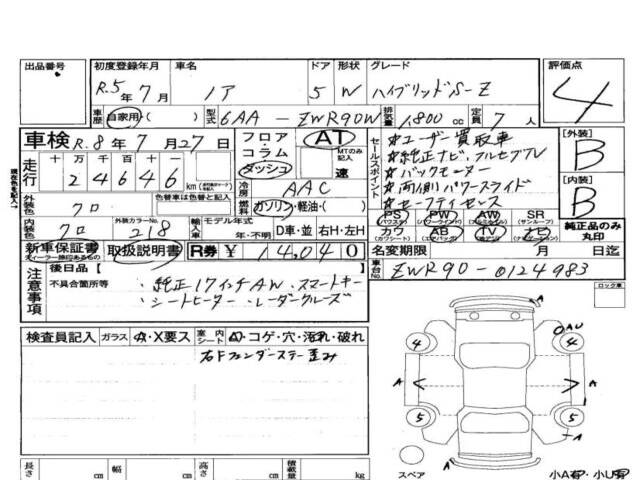 出品番号 初度登録年月 車名 ドア 形状 グレード 評価点
R.5年 7月 ノア 5 W ハイブリッドS-Z 4
車歴 自家用・( ) 型式 6AA - ZWR90W 排気量 1,800 cc 定員 7 人
車検 R.8年 7月27日 フロア AT セールスポイント ＊ユーザー買取車 [外装]
走行 十 万 千 百 十 一 コラム MTのみ記入 ＊純正ナビ、フルセグTV B
2 4 6 4 6 km ダッシュ 速 ＊バックモニター
現在色を記入→ 外装色 クロ 色替車は色替と記入 冷房 AAC ＊両側パワースライド [内装]
燃料 ガソリン・軽油・( ) ＊セーフティセンス B
内装色 クロ 外装カラーNo. 218 輸入車 モデル年式 年・不明 D車・並 右H・左H PS PW AW SR
カワ AB TV ナビ 純正品のみ丸印
新車保証書 取扱説明書 R券 ￥ 14,040 名変期限 月 日迄
注意事項 後日品 車台No. ZWR90-0124983
不具合箇所等 ・純正17インチAW、スマートキー
・シートヒーター、レーダークルーズ
ロック車
検査員記入 ガラス A・X要ス 室内シート A・コゲ・穴・汚れ・破れ
右Fフェンダーステー歪み
A
AU
4 4
A A
5 5
A
スペア 小A有・小U有
長さ cm 幅 cm 高さ cm 積載量 kg